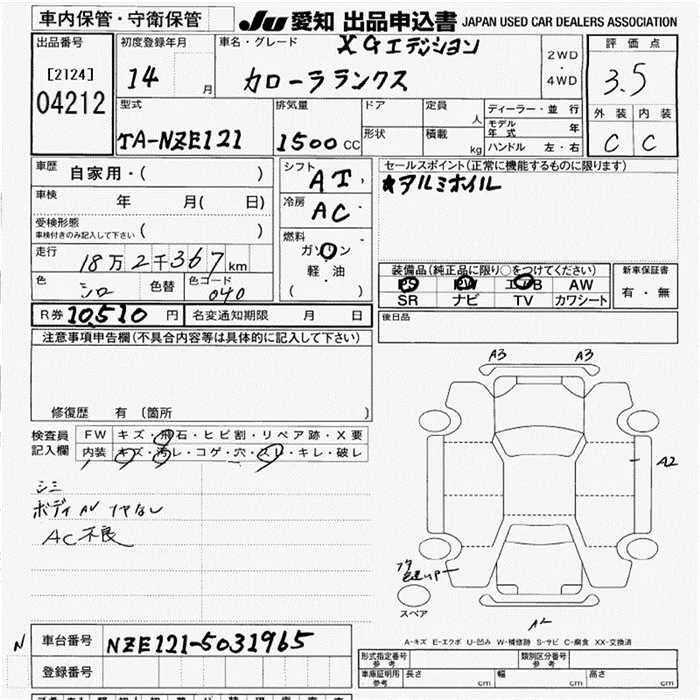 車内保管・守衛保管 JU 愛知 出品申込書 JAPAN USED CAR DEALERS ASSOCIATION
出品番号
[2124]
04212
初度登録年月
14 月
車名・グレード
XGエデンション
カローラランクス
2WD
・
4WD
評価点
3.5
外装 内装
C C
型式
TA-NZE121
排気量
1500 CC
ドア
形状
定員 人
積載 kg
ディーラー・並行
モデル年式 年
ハンドル 左・右
車歴 自家用・( )
車検 年 月( 日)
受検形態
車検付きのみ記入して下さい ( )
走行 18万2千367km
色 シロ 色替 色コード 040
シフト AT
冷房 AC
燃料
ガソリン
軽・油
( )
セールスポイント(正常に機能するものに限ります)
★アルミホイル
装備品(純正品に限り○をつけてください)
PS PW エアB AW
SR ナビ TV カワシート
新車保証書
有・無
R券 10,510 円 名変通知期限 月 日
後日品
注意事項申告欄(不具合内容等は具体的に記入して下さい)
修復歴 有 〔箇所 〕
検査員記入欄
FW キズ・飛石・ヒビ割・リペア跡・X要
内装 キズ・汚レ・コゲ・穴・スレ・キレ・破レ
シミ
ボディ
AC不良
A3 A3
A2
スペア
A-キズ E-エクボ U-凹み W-補修跡 S-サビ C-腐食 XX-交換済
N 車台番号 NZE121-5031965
登録番号
形式指定番号
参考
類別区分番号
参考
車庫証明用
参考
長さ cm 幅 cm 高さ cm